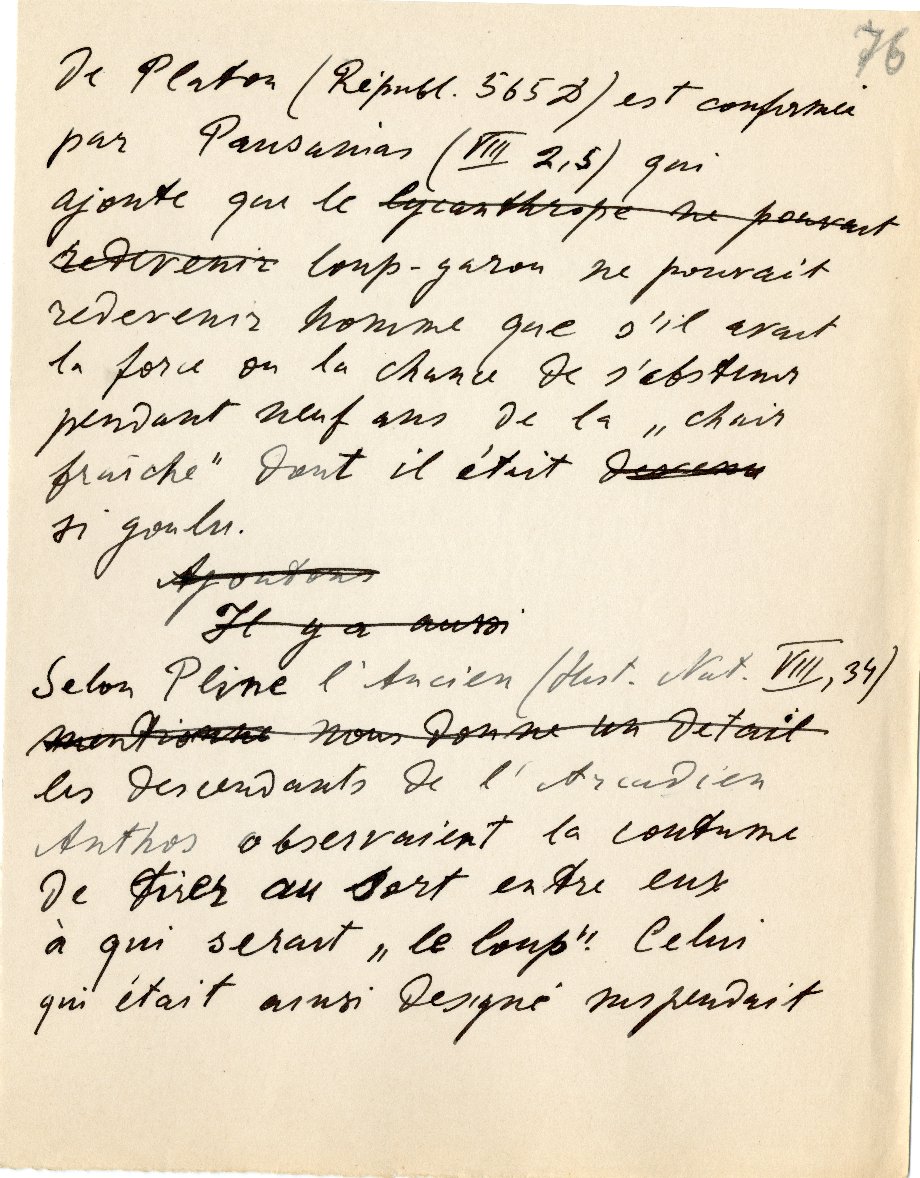 76
de Platon (Républ. 565 D) est confirmée
par Pausanias (VIII 2,5) qui
ajoute que le lycanthrope ne pouvait
redevenir loup-garou ne pouvait
redevenir homme que s'il avait
la force ou la chance de s'abstenir
pendant neuf ans de la „chair
fraîche" dont il était devenu
si goulu.
Ajoutons
Il y a aussi
Selon Pline l'Ancien (Hist. Nat. VIII, 34)
mentionne nous donne un détail
les descendants de l'Arcadien
Anthos observaient la coutume
de tirer au sort entre eux
à qui serait „le loup". Celui
qui était ainsi désigné suspendait